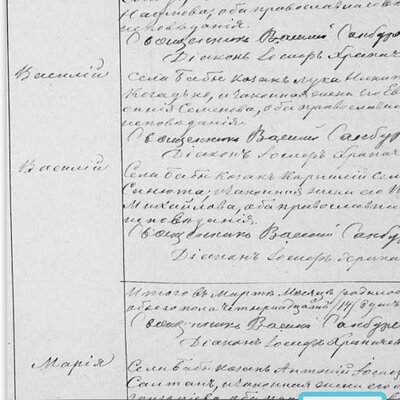 Наумова, оба православнаго
исповѣданія.
Священникъ Василій Самбур
Діаконъ Іосифъ Храпач
Василій
Села Бабы козакъ Лука Никит
Когадько, и законная жена его Ев
Семенова, оба православна
исповѣданія.
Священникъ Василій Самбур
Діаконъ Іосифъ Храпаче
Василій
Села Бабы козакъ Корнилій Сем
и законная жена его
Михайлова, оба православна
исповѣданія.
Священникъ Василій Самбур
Діаконъ Іосифъ Храпа
Итого въ Мартѣ Мѣсяцѣ родилось
обоего пола четырнадцать /14/ душъ
Священникъ Василій Самбур
Діаконъ Іосифъ Храпачев
Марія
Села Бабы козакъ Антоній Іосиф
Салтан, и законная жена его
оба православн